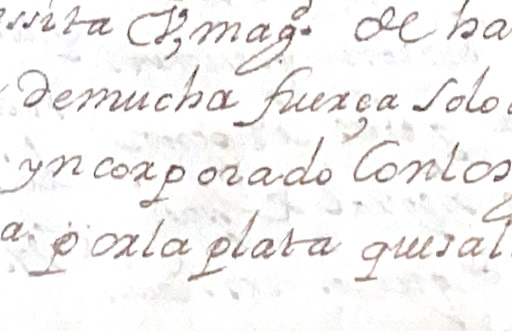 essita V, mag. de ha
demucha fuerça solo
yncorporado Conlos
a porla plata quesal